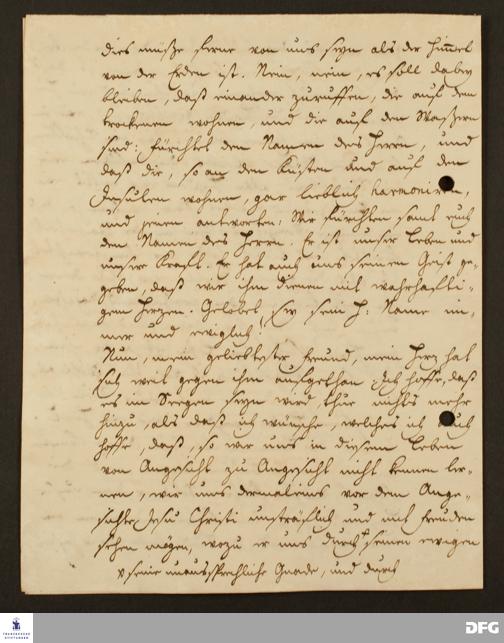 dies müße ferne von uns seyn als der Himmel
von der Erden ist. Nein, nein, es soll dabey
bleiben, daß einander zuruffen, die auf dem
trockenen wohnen, und die auf den Waßern
sind: fürchtet den Namen des Herrn, und
daß die, so an den Küsten und auf den
Insulen wohnen, gar lieblich harmoniren,
und jenen antworten: Wir fürchten samt euch
den Namen des Herrn. Er ist unser Leben und
unsere Krafft. Er hat auch uns seinen Geist ge-
geben, daß wir ihm dienen mit wahrhafti-
gem Herzen. Gelobet sey sein H: Name im-
mer und ewiglich!
Nun, mein geliebtester Freund, mein Herz hat
sich weit gegen ihm aufgethan. Ich hoffe, daß
es im Seegen seyn wird, thue nichts mehr
hinzu, als daß ich wünsche, welches ich auch
hoffe, daß, so wir uns in diesem Leben
von Angesicht zu Angesicht nicht kennen ler-
nen, wir uns dermaleins vor dem Ange-
sichte Jesu Christi unsträflich und mit freuden
sehen mögen, wozu er uns durch seinen ewigen
seine unaussprechliche Gnade, und durch
FRANCKESCHE STIFTUNGEN
DFG